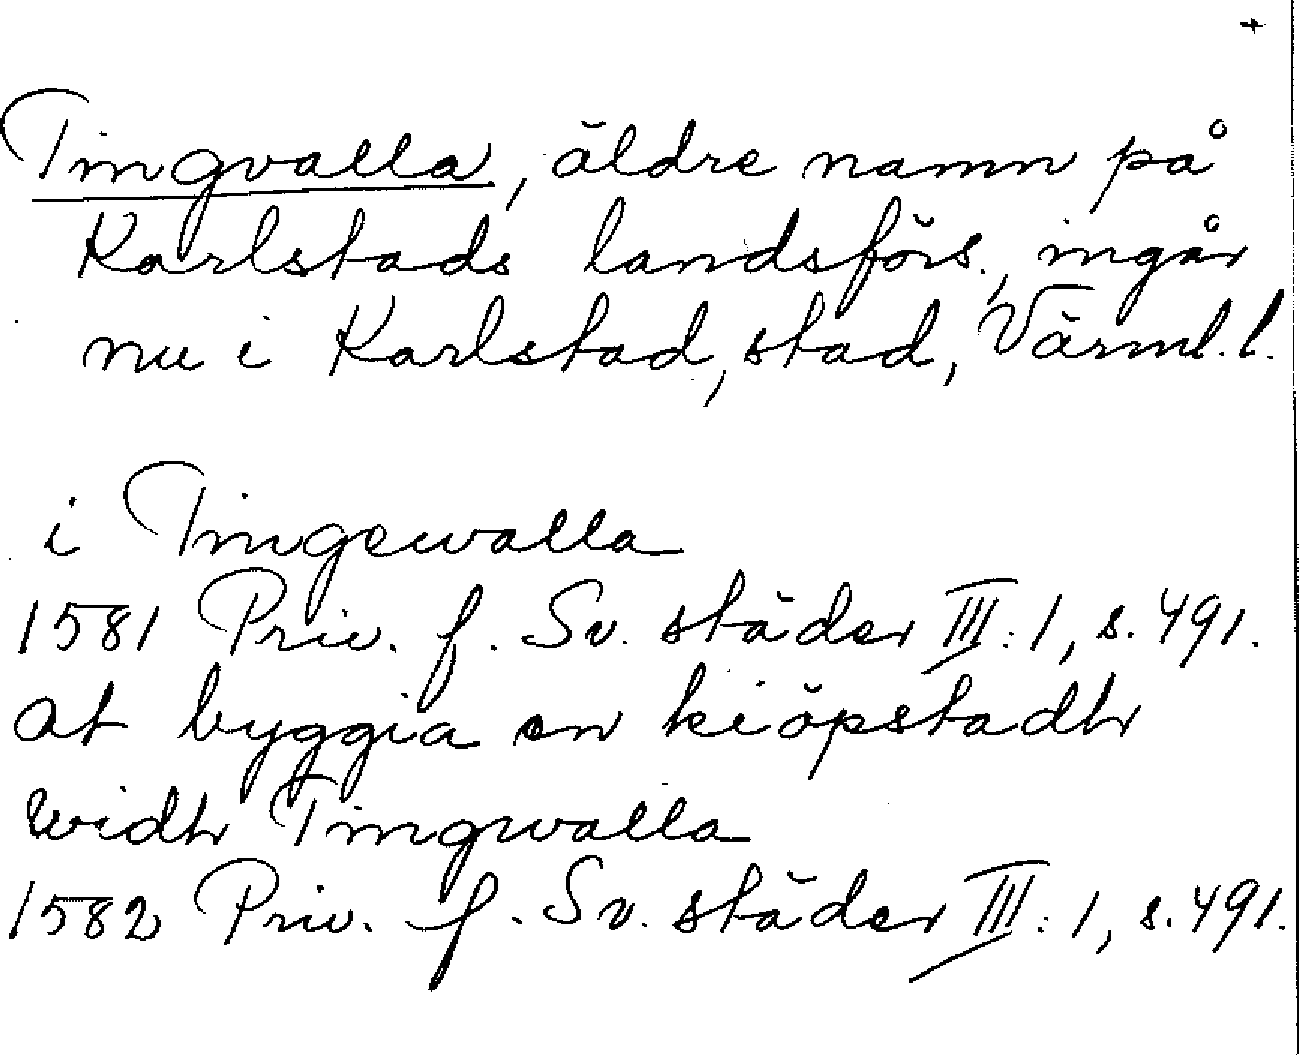 +
Tingvalla, äldre namn på
Karlstads landsförs., ingår
nu i Karlstad, stad, Värml. l.
i Tingewalla
1581 Priv. f. Sv. städer III: 1, s. 491.
at byggia en kiöpstadh
widh Tingwalla
1582 Priv. f. Sv. städer III: 1, s. 491.